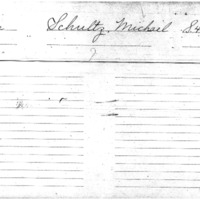 Schultz, Michael
?